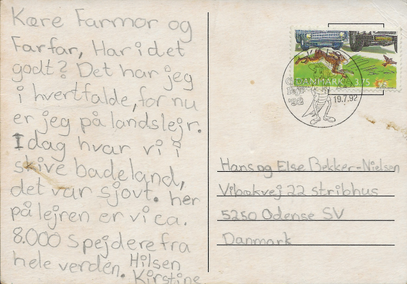 Kære Farmor og
Farfar, Har i det
godt? Det har jeg
i hvertfalde, for nu
er jeg på landslejr.
Idag hvar vi i
skive badeland,
det var sjovt. her
på lejren er vi ca.
8.000 spejdere fra
hele verden. Hilsen
Kirstine
DANMARK 3.75
19.7.92
Hans og Else Bekker-Nielsen
Vibækvej 22 stribhus
5250 Odense SV
Danmark